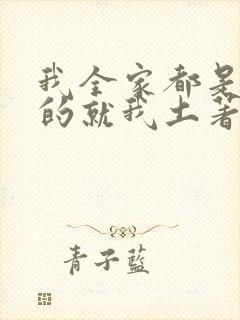 我全家都是
的就我土著
青子藍